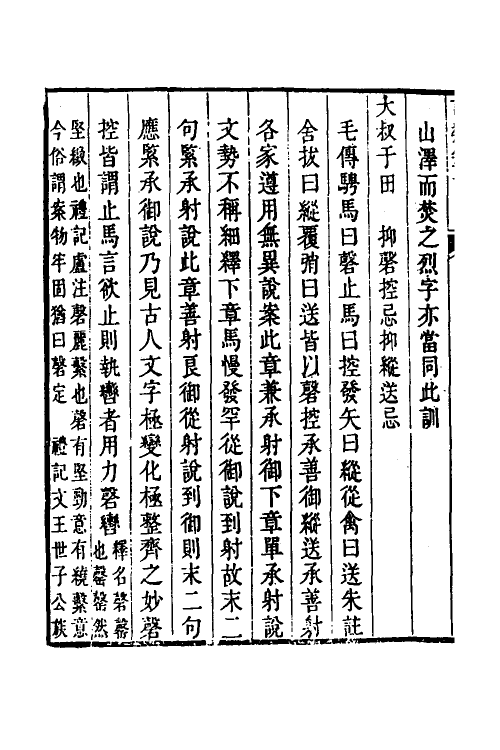 山澤而焚之烈字亦當同此訓
大叔于田　抑磬控忌抑縱送忌
毛傳騁馬曰磬止馬曰控發矢曰縱從禽曰送朱註
舍拔曰縱覆弰曰送皆以磬控承善御縱送承善射
各家遵用無異說案此章兼承射御下章單承射說
文勢不稱細釋下章馬慢發罕從御說到射故末二
句緊承射說此章善射良御從射說到御則末二句
應緊承御說乃見古人文字極變化極整齊之妙磬
控皆謂止馬言欲止則執轡者用力磬轡釋名磬罄
也罄罄然
堅緻也禮記盧注磬麗繫也磬有堅勁意有繞繫意
今俗謂案物牢固猶曰磬定　禮記文王世子公族